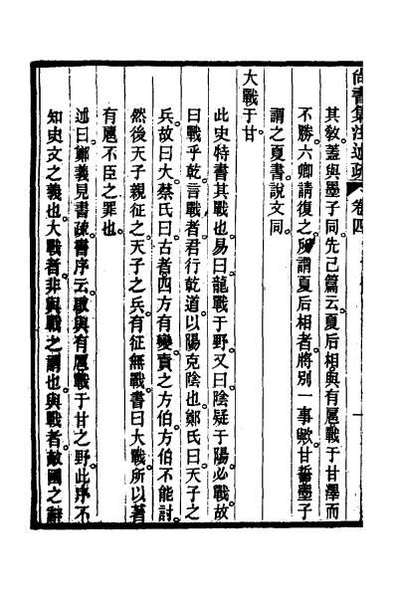 尚書集注述疏 卷四
其敘蓋與墨子同先己篇云夏后相與有扈戰于甘澤而
不勝六卿請復之所謂夏后相者將別一事歟甘誓墨子
謂之夏書說文同
大戰于甘
此史特書其戰也易曰龍戰于野又曰陰疑于陽必戰故
曰戰乎乾言戰者君行乾道以陽克陰也鄭氏曰天子之
兵故曰大蔡氏曰古者四方有變責之方伯方伯不能討
然後天子親征之天子之兵有征無戰書曰大戰所以著
有扈不臣之罪也
述曰鄭義見書疏書序云啟與有扈戰于甘之野此序不
知史文之義也大戰者非與戰之謂也與戰者敵國之辭